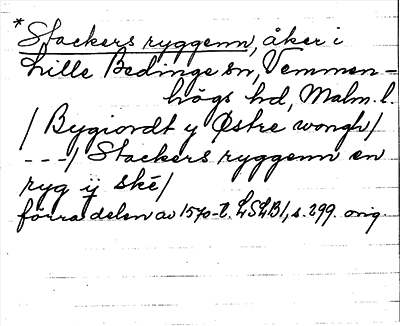 *Stackers ryggenn, åker i
Lille Bedinge sn, Vemmen-
högs hd, Malm. l.
/ Bygiordt y Østre wongh/
---/ Stackers ryggenn en
ryg ij ské/
förra delen av 1570-t. LSLB1, s. 299. orig.